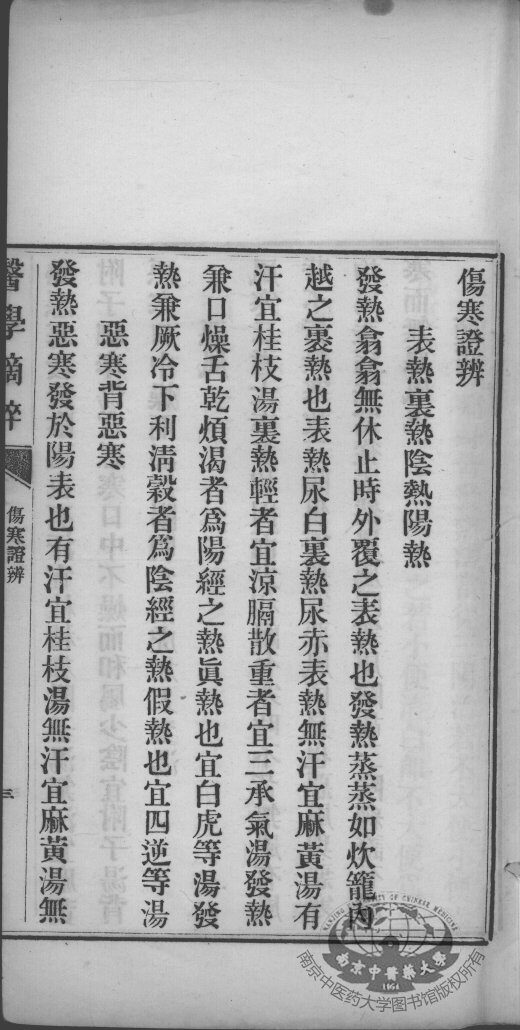 傷寒證辨
表熱裏熱陰熱陽熱
發熱翕翕無休止時外覆之表熱也發熱蒸蒸如炊籠內
越之裏熱也表熱尿白裏熱尿赤表熱無汗宜麻黃湯有
汗宜桂枝湯裏熱輕者宜涼膈散重者宜三承氣湯發熱
兼口燥舌乾煩渴者爲陽經之熱眞熱也宜白虎等湯發
熱兼厥冷下利淸穀者爲陰經之熱假熱也宜四逆等湯
惡寒背惡寒
發熱惡寒發於陽表也有汗宜桂枝湯無汗宜麻黃湯無
醫學摘粹
傷寒證辨
三
NANJING UNIVERSITY OF CHINESE MEDICINE
南京中醫藥大學
1954
南京中医药大学图书馆版权所有